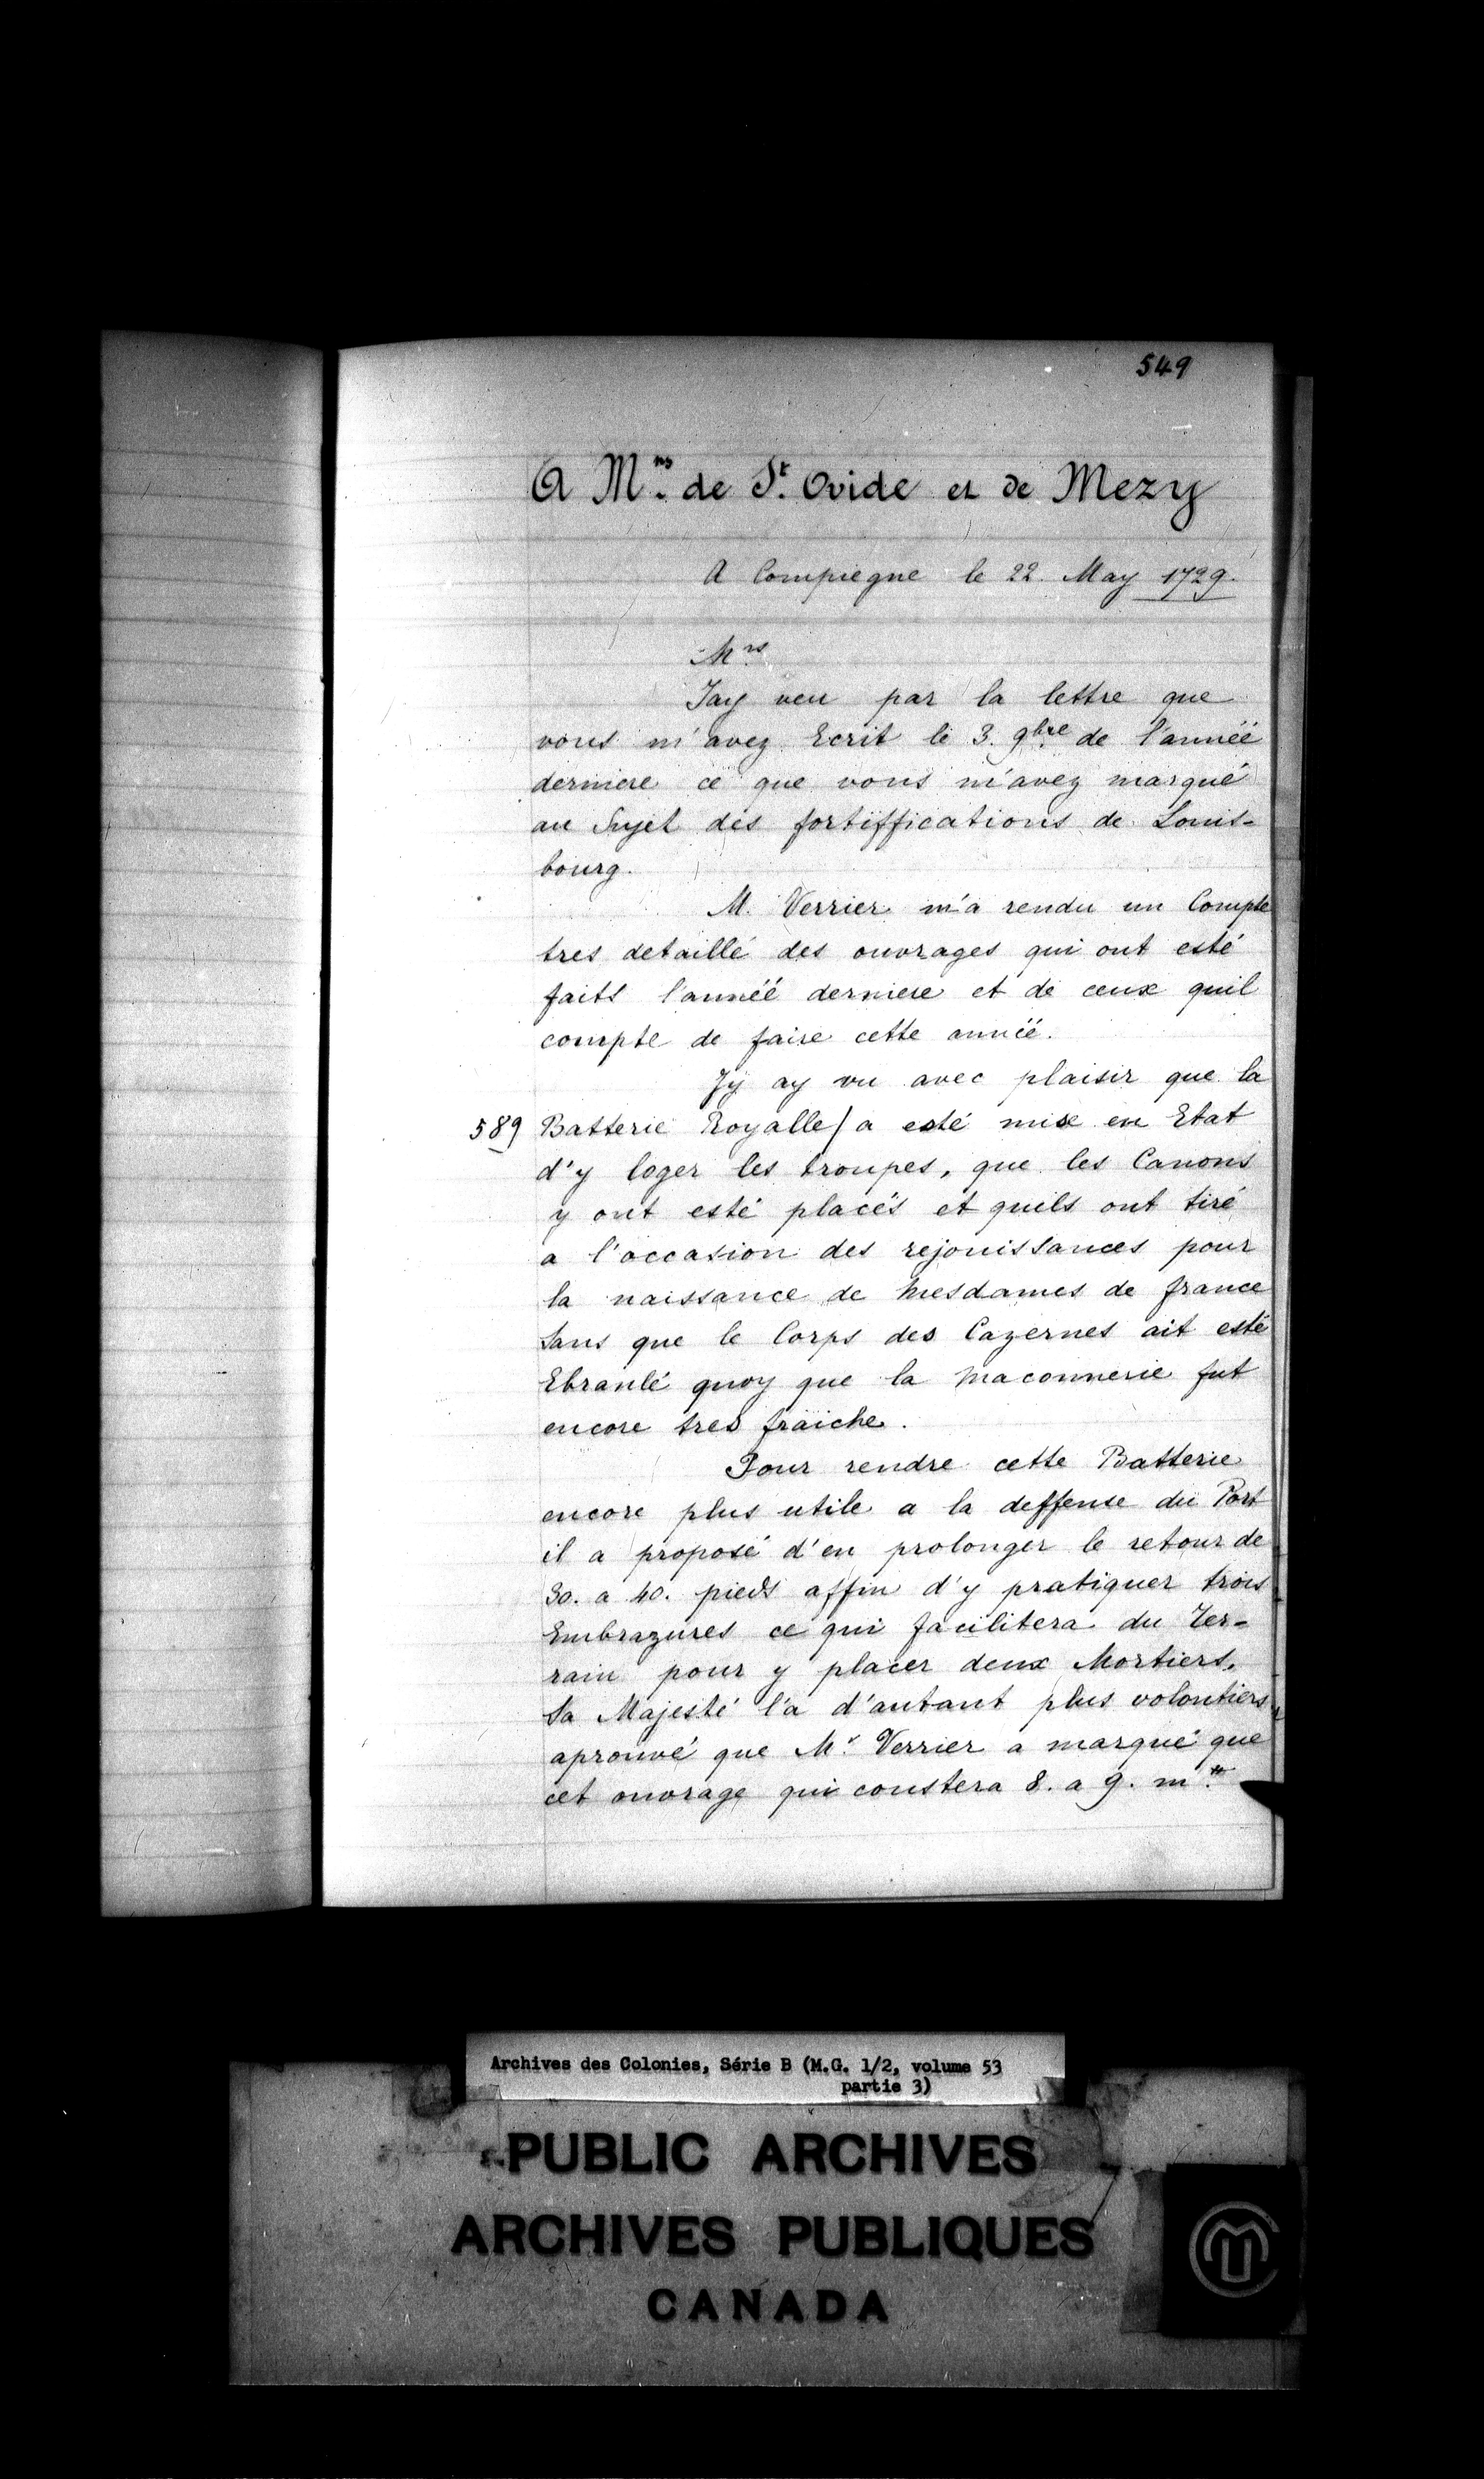 549
A Mrs. de St. Ovide et de Mezy
A Compiegne le 22. May 1729.
Mrs
Jay veu par la lettre que
vous m'avez Ecrit le 3. 9bre de l'année
derniere ce que vous m'avez marqué
au Sujet des fortiffications de Louis-
bourg.
M. Verrier m'a rendu un Compte
tres detaillé des ouvrages qui ont esté
faits l'année derniere et de ceux quil
compte de faire cette année.
Jy ay vu avec plaisir que la
589 Batterie Royalle/a esté mise en Etat
d'y loger les troupes, que les Canons
y ont esté placés et quils ont tiré
a l'occasion des rejouissances pour
la naissance de Mesdames de france
Sans que le Corps des Cazernes ait esté
Ebranlé quoy que la Maconnerie fut
encore tres fraiche.
Pour rendre cette Batterie
encore plus utile a la deffense du Port
il a proposé d'en prolonger le retour de
30. a 40. pieds affin d'y pratiquer trois
Embrazures ce qui facilitera du Ter-
rain pour y placer deux Mortiers,
Sa Majesté l'a d'autant plus volontiers
aprouvé que Mr. Verrier a marqué que
cet ouvrage qui coustera 8. a 9. m.tt
Archives des Colonies, Série B (M.G. 1/2, volume 53
partie 3)
PUBLIC ARCHIVES
ARCHIVES PUBLIQUES
CANADA